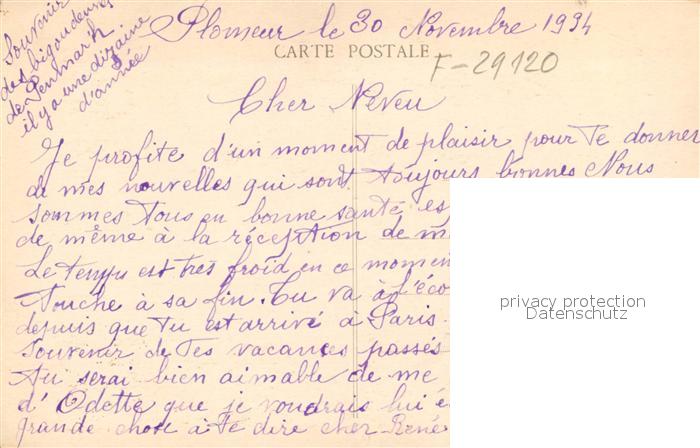 Souvenir
des bigoudennes
de Penmarh
il y a une dizaine
d'année
Plomeur le 30 Novembre 1934
CARTE POSTALE
F-29120
Cher Neveu
Je profite d'un moment de plaisir pour te donner
de mes nouvelles qui sont toujours bonnes Nous
sommes tous en bonne santé es
de même à la réception de m
Le temps est tres froid en ce momen
Touche à sa fin. Tu va à l'éco
depuis que tu est arrivé à Paris
souvenir de tes vacances passés
Tu serai bien aimable de me
d'Odette que je voudrais lui é
grande chose à te dire cher René
privacy protection
Datenschutz